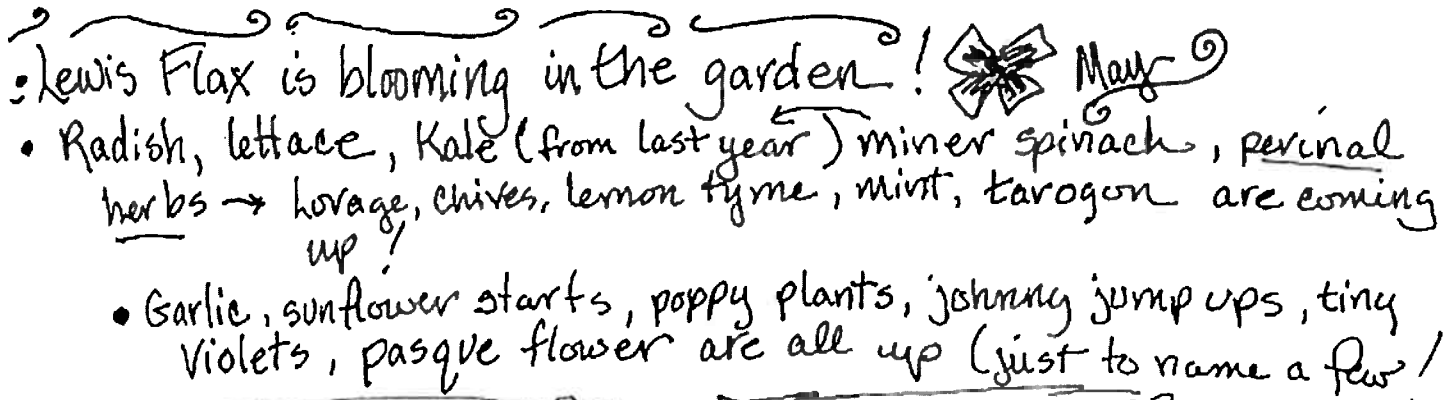 • Lewis Flax is blooming in the garden! May
• Radish, lettace, Kale (from last year) miner spinach, perinal
herbs → Lovage, chives, lemon tyme, mint, tarogon are coming
up!
• Garlic, sunflower starts, poppy plants, johnny jump ups, tiny
violets, pasque flower are all up (just to name a few!